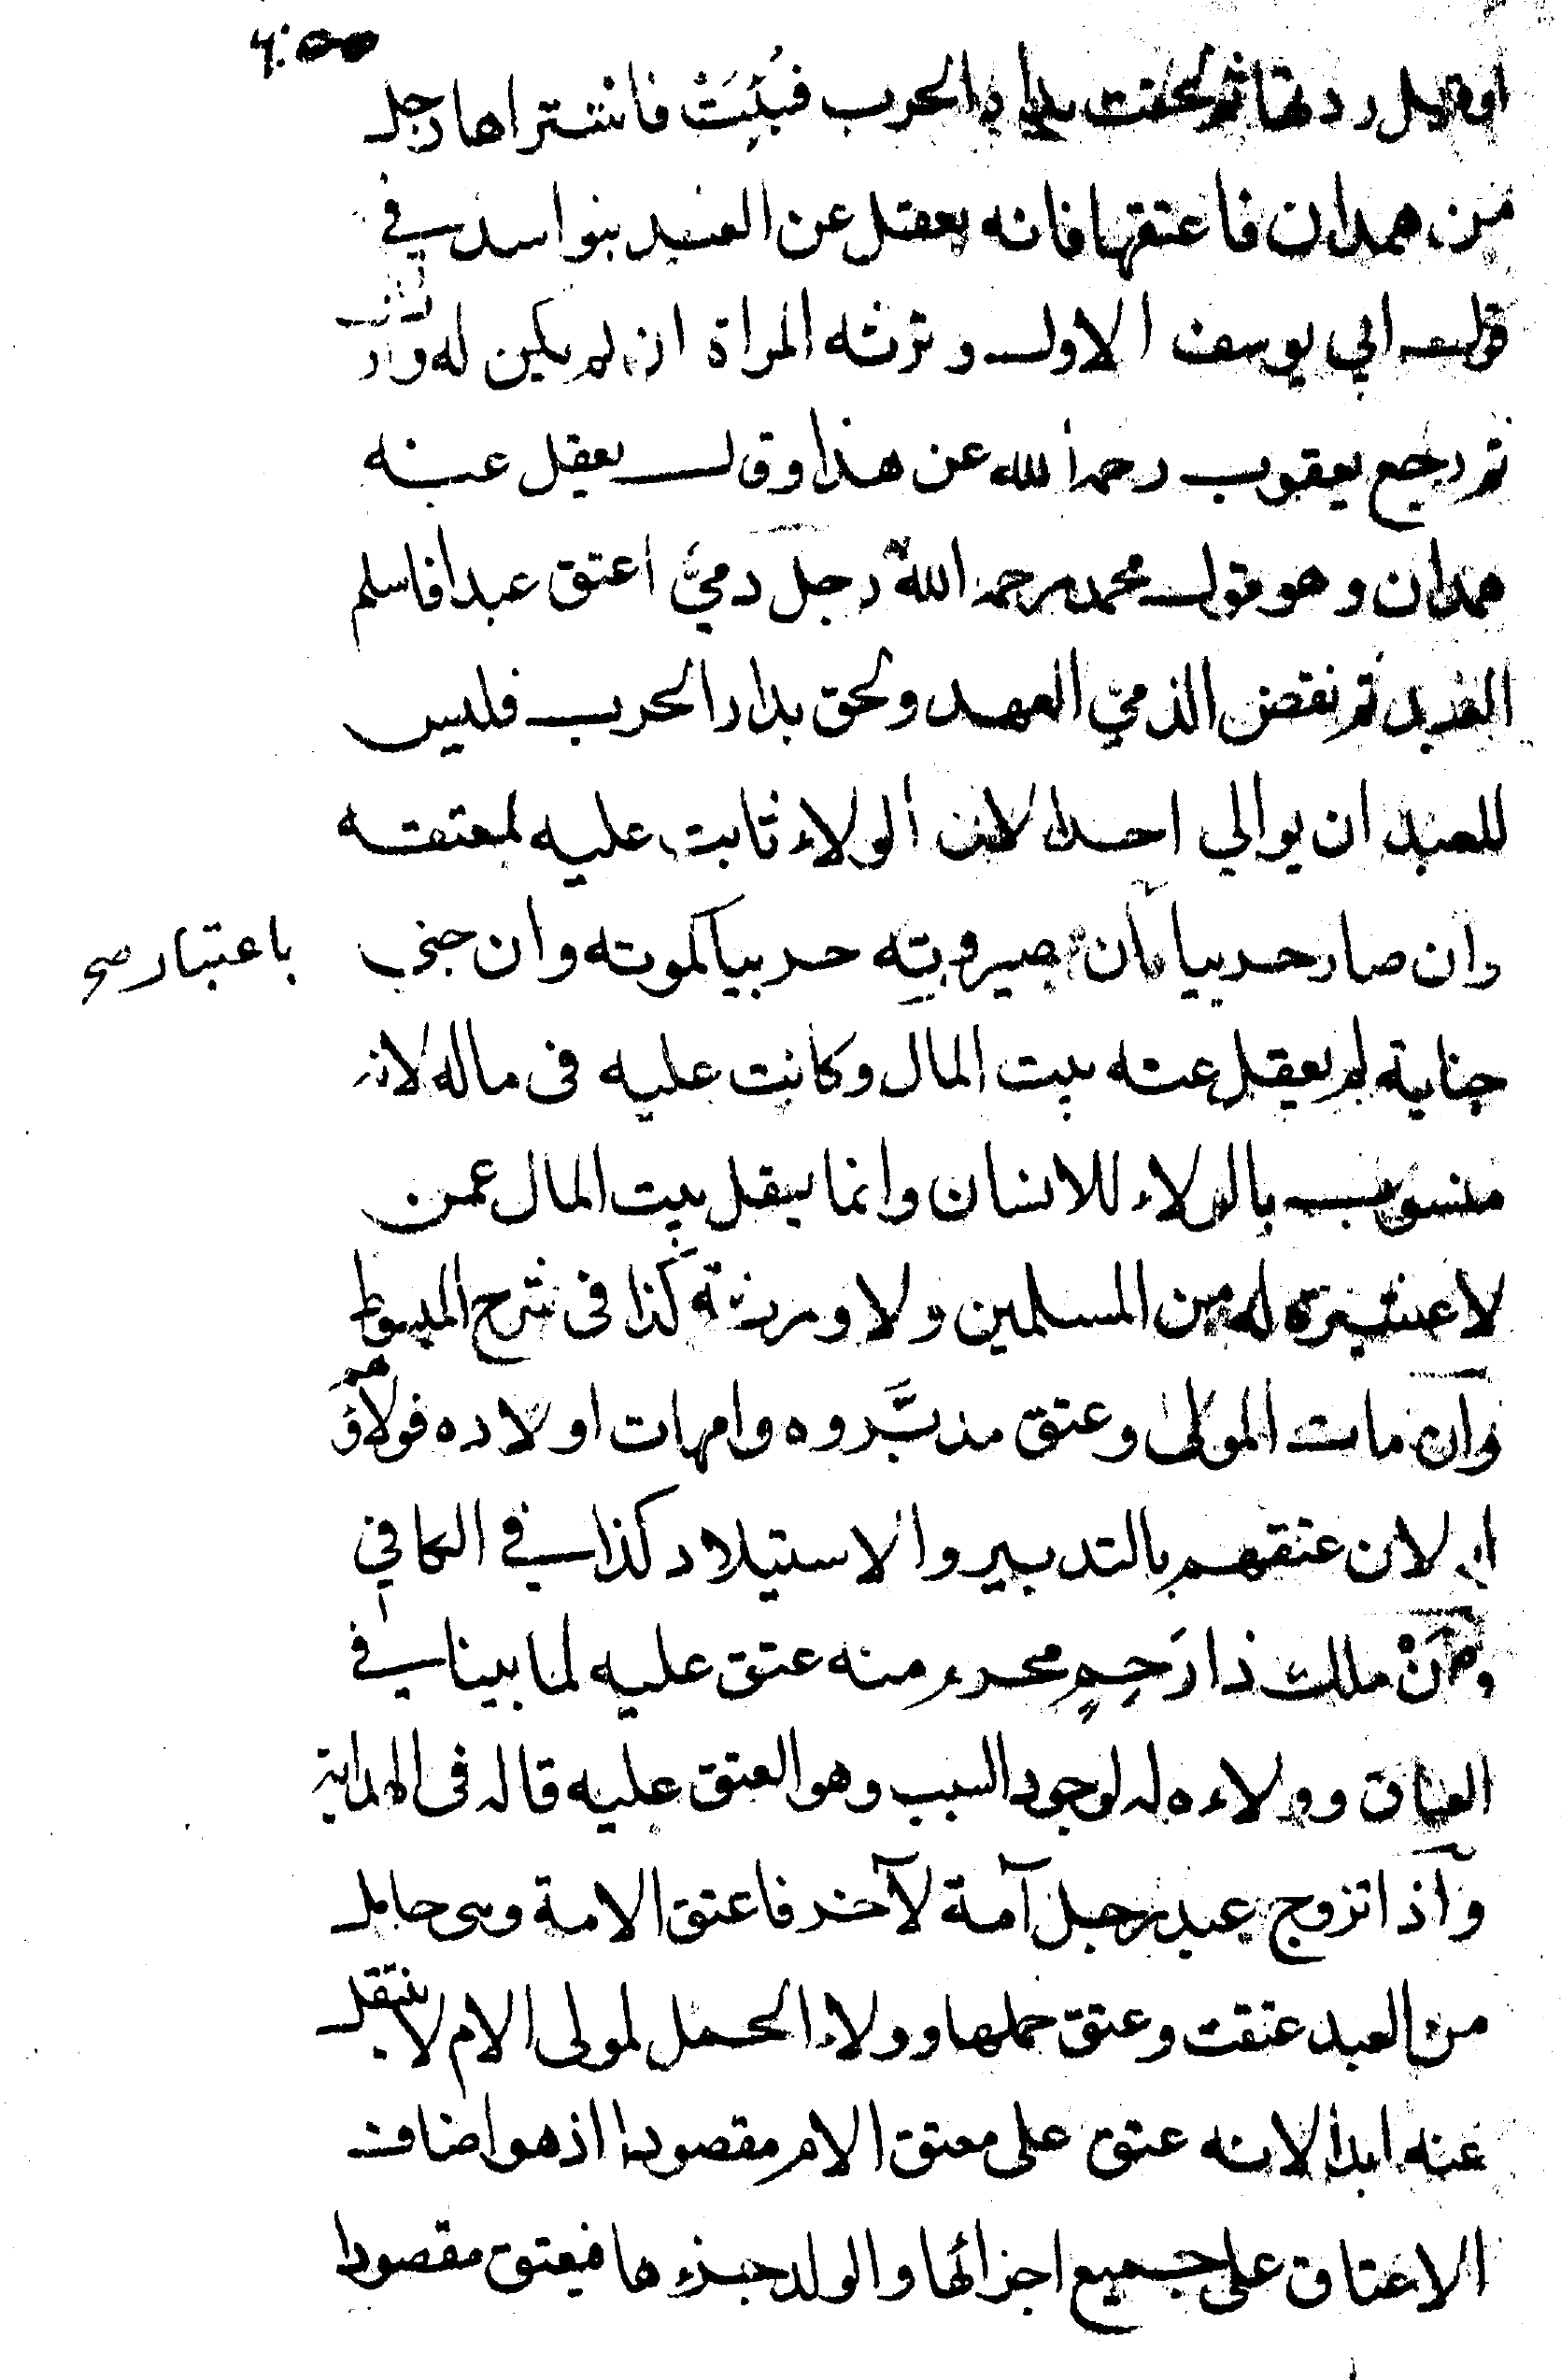 او قبل ردتها ثم لحقت بدار الحرب فسُبِيَتْ فاشتراها رجل
من همدان فاعتقها فانه يعقل عن العبد بنو اسد في
قول ابي يوسف الاول وترثه المراة ان لم يكن له وارث
ثم رجع يعقوب رحمه الله عن هذا وقال يعقل عنه
همدان وهو قول محمد رحمه الله رجل ذمي اعتق عبدا فاسلم
العبد ثم نقض الذمي العهد ولحق بدار الحرب فليس
للعبد ان يوالي احدا لان الولاء ثابت عليه لمعتقه
وان صار حربيا لان صيرورته حربيا كموته وان جنى
باعتبار صح
جناية لم يعقل عنه بيت المال وكانت عليه فى ماله لانه
منسوب بالولاء للانسان وانما يعقل بيت المال عمن
لا عشيرة له من المسلمين ولا ورثة كذا فى شرح المبسوط
وان مات المولى وعتق مدبَّروه وامهات اولاده فولاؤهم
له لان عتقهم بالتدبير والاستيلاد كذا في الكافي
ومَنْ ملك ذا رَحِمٍ محرم منه عتق عليه لما بينا في
العتاق وولاءه له لوجود السبب وهو العتق عليه قاله فى الهداية
واذا تزوج عبد رجل آمة لآخر فاعتق الامة وهى حامل
من العبد عتقت وعتق حملها وولاء الحمل لمولى الام لا ينتقل
عنه ابدا لانه عتق على معتق الام مقصودا اذ هو اضاف
الاعتاق على جميع اجزائها والولد جزءها فيعتق مقصودا